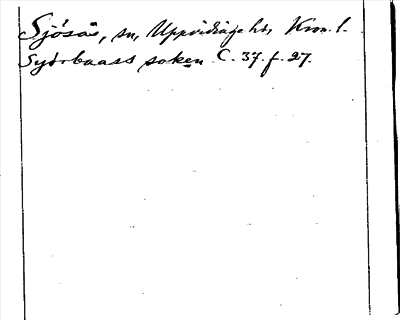 Sjösås, sn, Uppvidinge hd, Kron. l.
Syörbaass soken C. 37. f. 27.